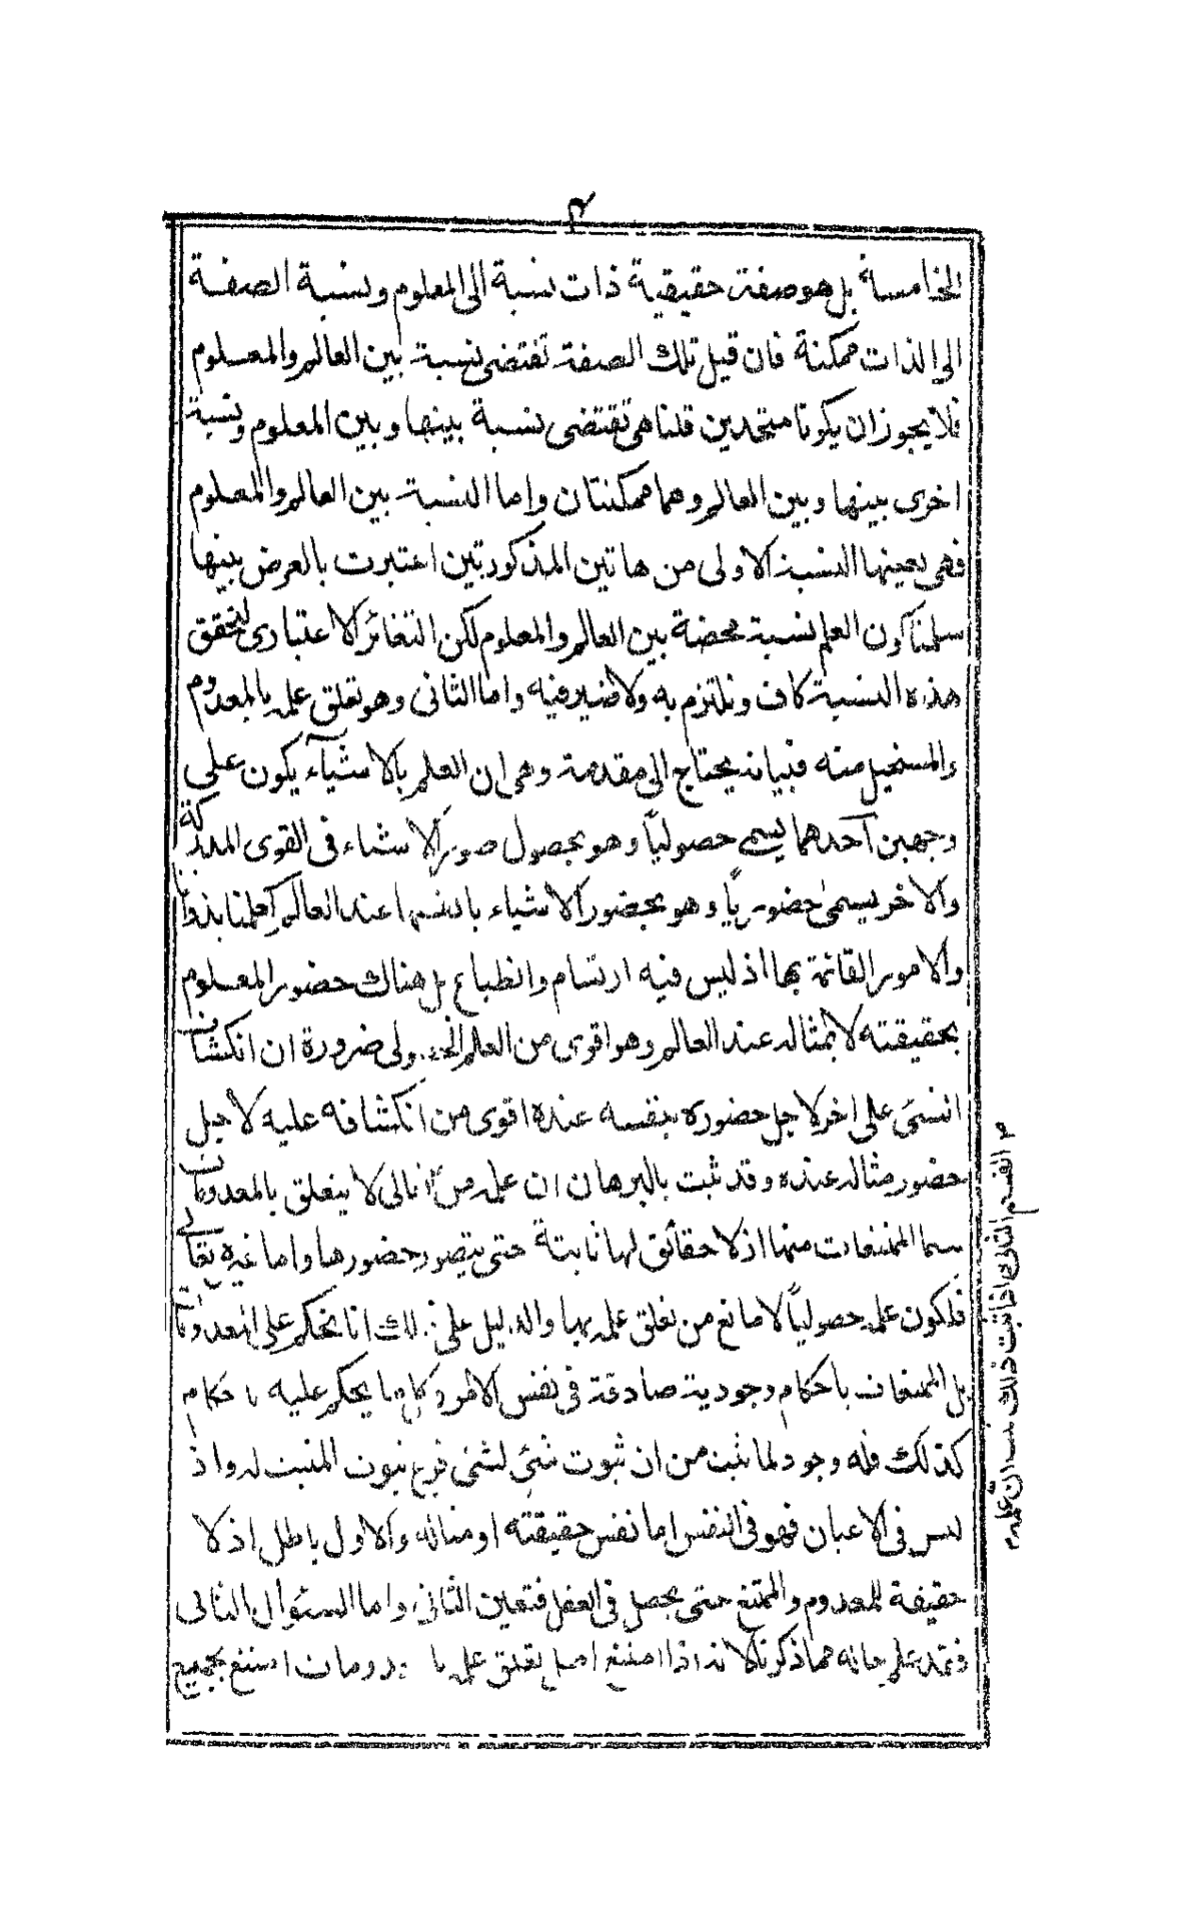 ٣
الخامسة بل هو صفة حقيقية ذات نسبة الى المعلوم ونسبة الصفة
الى الذات ممكنة فان قيل تلك الصفة تقتضى نسبة بين العالم والمعلوم
فلا يجوز ان يكونا متحدين قلنا هى تقتضى نسبة بينها وبين المعلوم ونسبة
اخرى بينها وبين العالم وهما ممكنتان واما النسبة بين العالم والمعلوم
فهى بعينها النسبة الاولى من هاتين المذكورتين اعتبرت بالعرض بينها
سلمنا كون العلم نسبة محضة بين العالم والمعلوم لكن التغائر الاعتبارى لتحقق
هذه النسبة كاف ونلتزم به ولا ضير فيه واما الثانى وهو تعلق علمه بالمعدوم
والمستحيل منه فبيانه يحتاج الى مقدمة وهى ان العلم بالاشيآء يكون على
وجهين آحدهما يسمى حصولياً وهو بحصول صور الاشياء فى القوى المدركة
والاخر يسمى حضورياً وهو بحضور الاشياء بانفسها عند العالم كعلمنا بذواتنا
والامور القائمة بها اذ ليس فيه ارتسام وانطباع بل هناك حضور المعلوم
بحقيقته لا بمثاله عند العالم وهو اقوى من العلم الحصولى ضرورة ان انكشاف
الشئ على اخر لاجل حضوره بنفسه عنده اقوى من انكشافه عليه لاجل
حضور مثاله عنده وقد ثبت بالبرهان ان علمه من الثانى لا يتعلق بالمعدومات
سيما الممتنعات منها اذ لا حقائق لها ثابتة حتى يتصور حضورها واما غيره تعالى
فلكون علمه حصولياً لا مانع من تعلق علمه بها والدليل على ذلك انا نحكم على المعدومات
بل الممتنعات باحكام وجودية صادقة فى نفس الامر وكل ما يحكم عليه باحكام
كذلك فله وجود لما ثبت من ان ثبوت شئ لشئ فرع ثبوت المثبت له واذ
ليس فى الاعيان فهو فى النفس اما نفس حقيقته او مثاله والاول باطل اذ لا
حقيقة للمعدوم والممتنع حتى يحصل فى العقل فتعين الثانى واما السئوال الثانى
حاله مما ذكرنا لانه اذا امتنع تعلق علمه امتنع بجميع
القسم الثانى اذا ثبت ذلك ان علمه